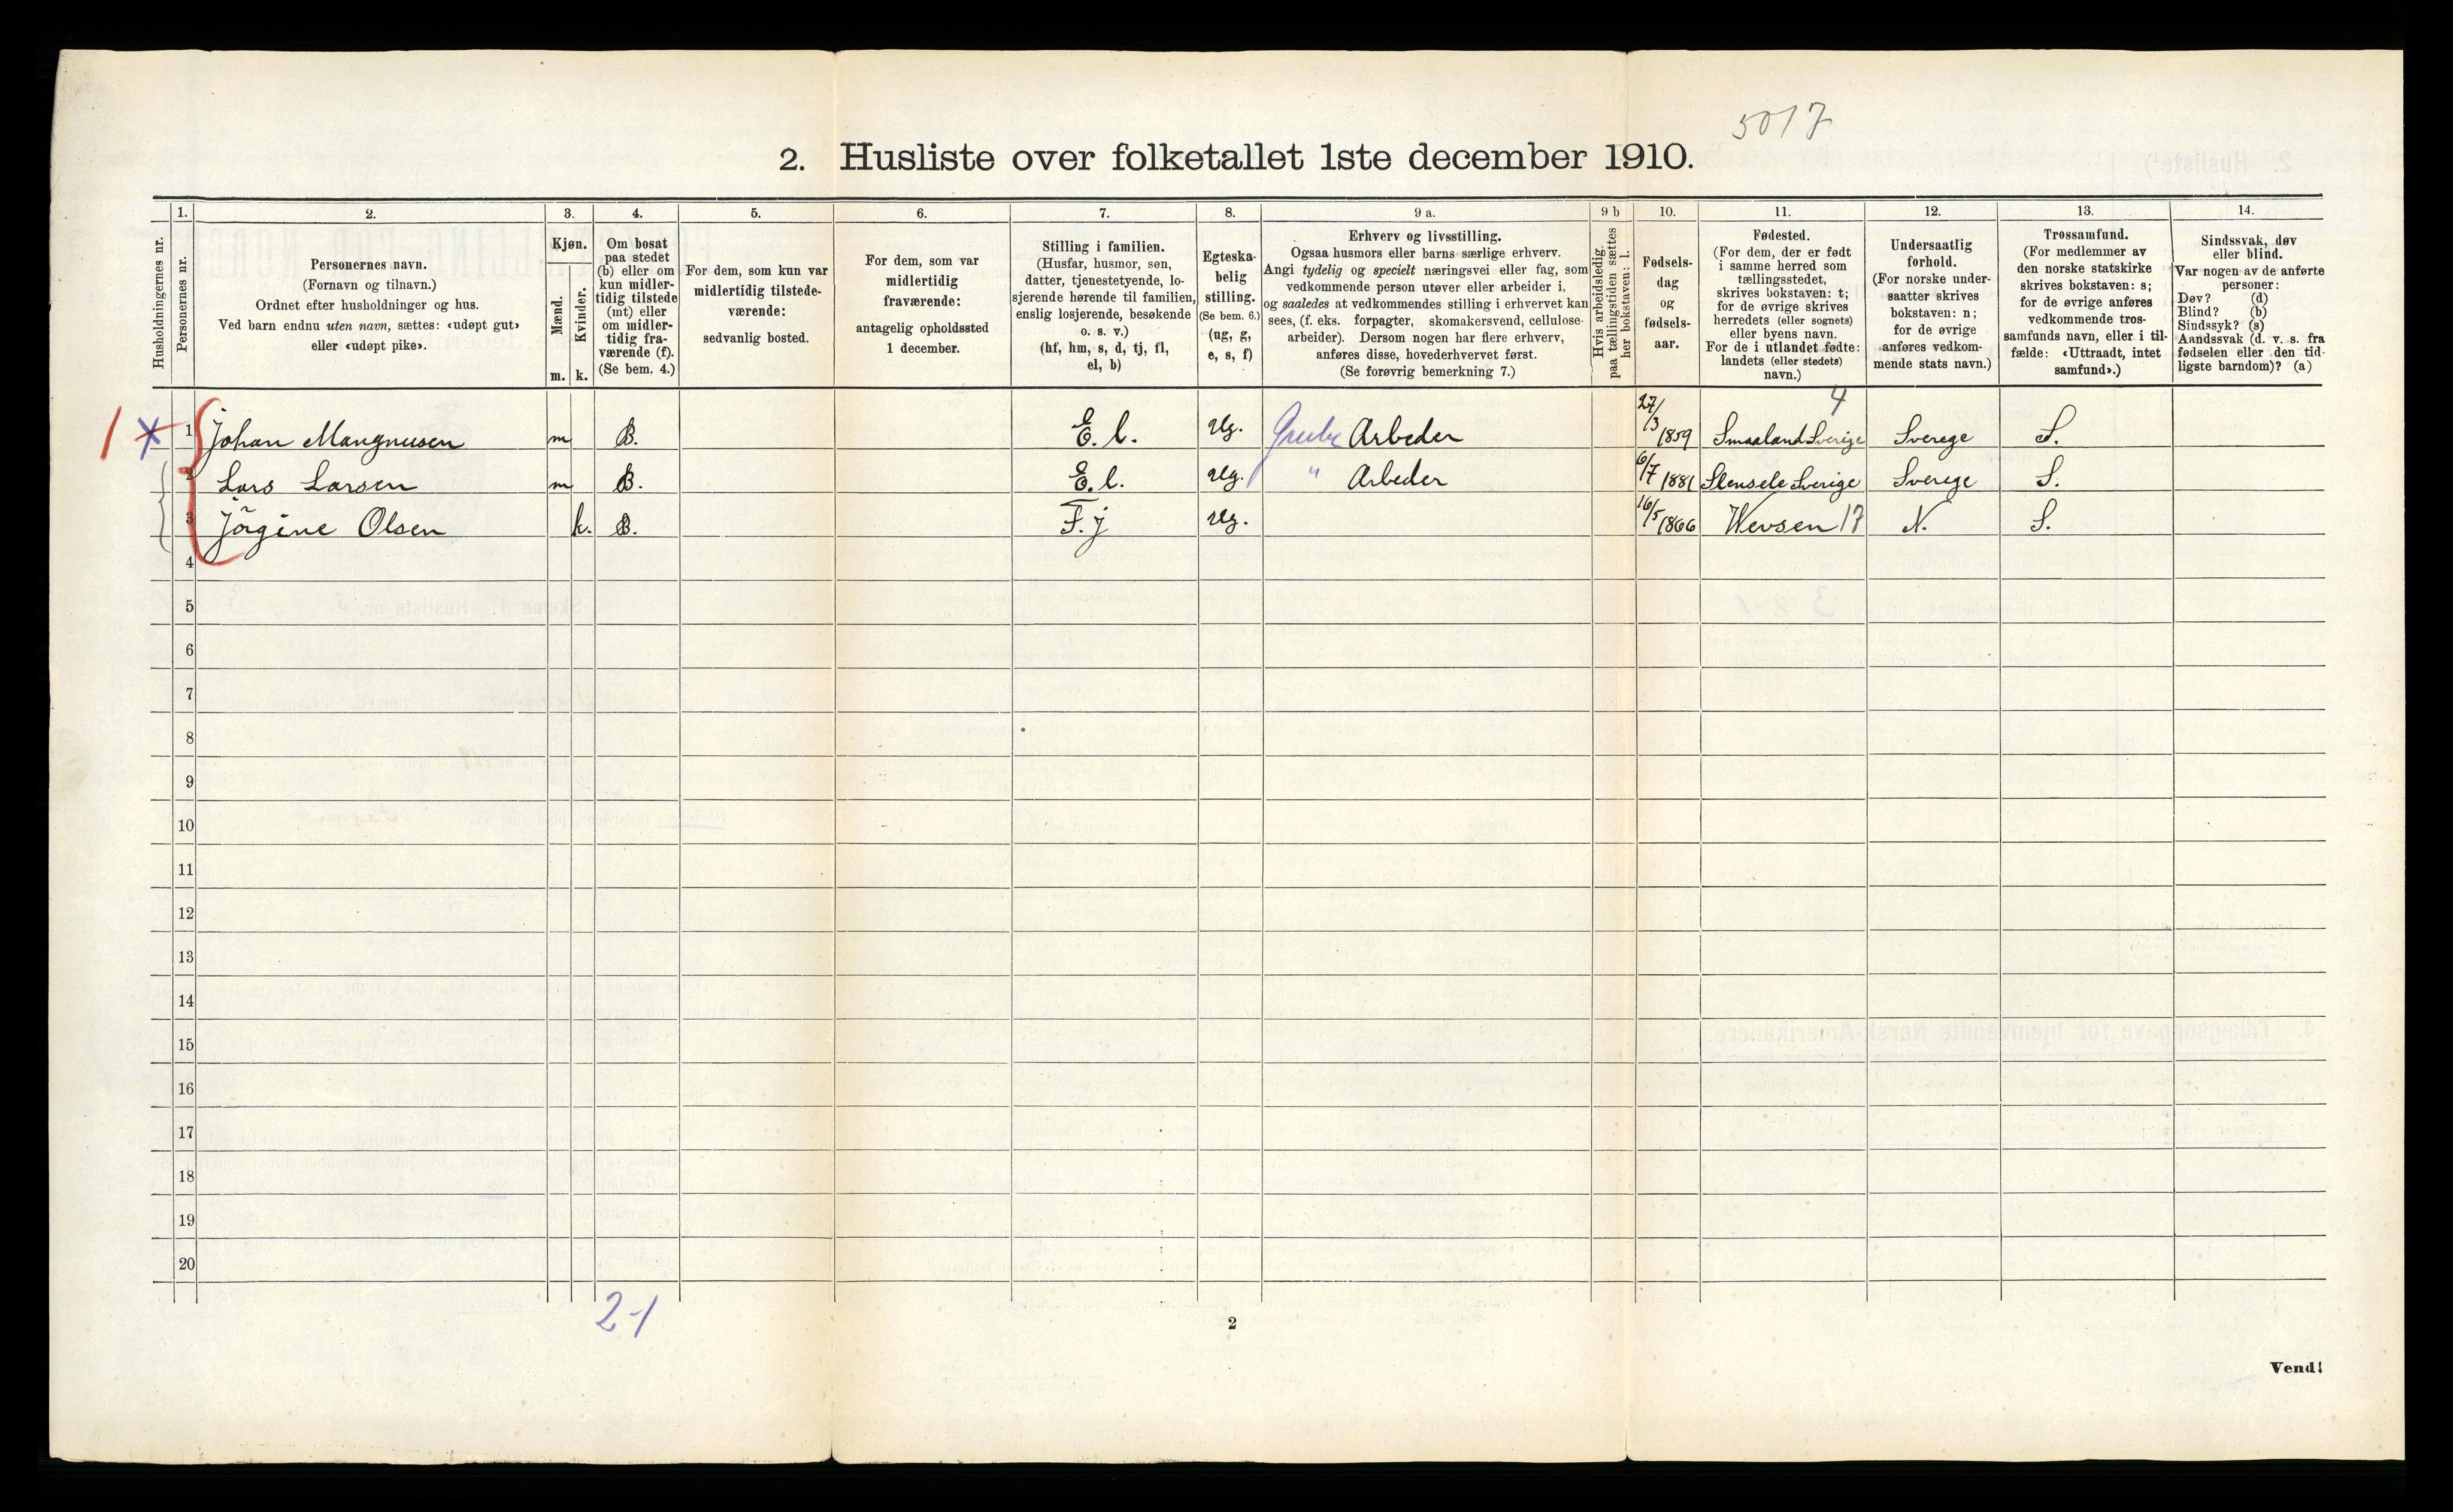 5017
2. Husliste over folketallet 1ste december 1910.
Husholdningernes nr.
1.
Personernes nr.
2.
Personernes navn.
(Fornavn og tilnavn.)
Ordnet efter husholdninger og hus.
Ved barn endnu uten navn, sættes: «udøpt gut»
eller «udøpt pike».
3.
Kjøn.
Mænd.
Kvinder.
m. k.
4.
Om bosat
paa stedet
(b) eller om
kun midler-
tidig tilstede
(mt) eller
om midler-
tidig fra-
værende (f).
(Se bem. 4.)
5.
For dem, som kun var
midlertidig tilstede-
værende:
sedvanlig bosted.
6.
For dem, som var
midlertidig
fraværende:
antagelig opholdssted
1 december.
7.
Stilling i familien.
(Husfar, husmor, søn,
datter, tjenestetyende, lo-
sjerende hørende til familien,
enslig losjerende, besøkende
o. s. v.)
(hf, hm, s, d, tj, fl,
el, b)
8.
Egteska-
belig
stilling.
(Se bem. 6.)
(ug, g,
e, s, f)
9 a.
Erhverv og livsstilling.
Ogsaa husmors eller barns særlige erhverv.
Angi tydelig og specielt næringsvei eller fag, som
vedkommende person utøver eller arbeider i,
og saaledes at vedkommendes stilling i erhvervet kan
sees, (f. eks. forpagter, skomakersvend, cellulose-
arbeider). Dersom nogen har flere erhverv,
anføres disse, hovederhvervet først.
(Se forøvrig bemerkning 7.)
9 b
Hvis arbeidsledig
paa tællingstiden sættes
her bokstaven: l.
10.
Fødsels-
dag
og
fødsels-
aar.
11.
Fødested.
(For dem, der er født
i samme herred som
tællingsstedet,
skrives bokstaven: t;
for de øvrige skrives
herredets (eller sognets)
eller byens navn.
For de i utlandet fødte:
landets (eller stedets)
navn.)
12.
Undersaatlig
forhold.
(For norske under-
saatter skrives
bokstaven: n;
for de øvrige
anføres vedkom-
mende stats navn.)
13.
Trossamfund.
(For medlemmer av
den norske statskirke
skrives bokstaven: s;
for de øvrige anføres
vedkommende tros-
samfunds navn, eller i til-
fælde: «Uttraadt, intet
samfund».)
14.
Sindssvak, døv
eller blind.
Var nogen av de anførte
personer:
Døv? (d)
Blind? (b)
Sindssyk? (s)
Aandssvak (d. v. s. fra
fødselen eller den tid-
ligste barndom)? (a)
4
1 x 1 Johan Mangnusen m B. E. l. Ug. Grube Arbeder 27/3 1859 Smaaland Sverige Sverege S.
2 Lars Larsen m B. E. l. Ug. " Arbeder 6/7 1881 Stensele Sverige Sverege S.
3 Jörgine Olsen k. B. T. j Ug. 16/5 1866 Wevsen 17 N. S.
4
5
6
7
8
9
10
11
12
13
14
15
16
17
18
19
20
2-1
2
Vend!